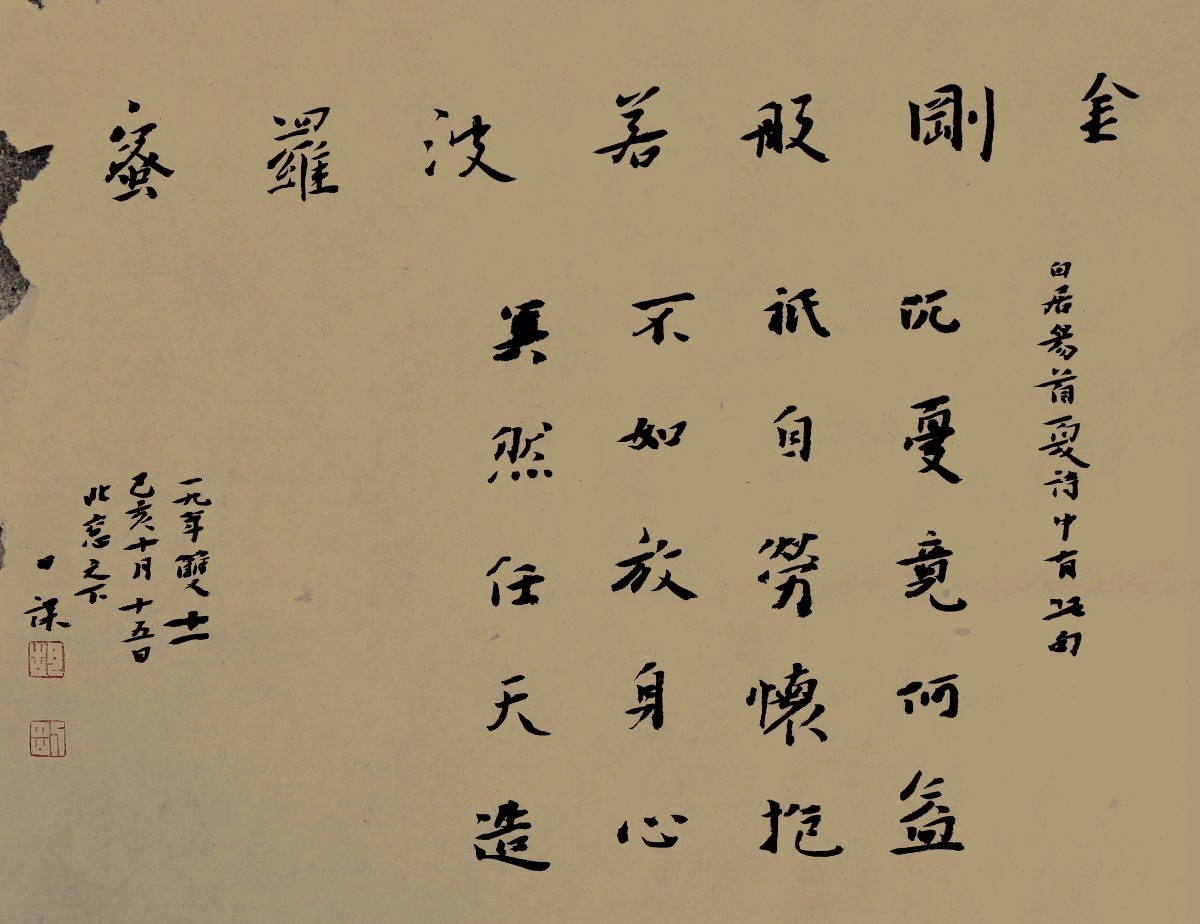 金剛般若波羅蜜
白居易首夏詩中有此句
沉憂竟何益
祇自勞懷抱
不如放身心
冥然任天造
一九年雙十一
己亥十月十五日
北窓之下
日課